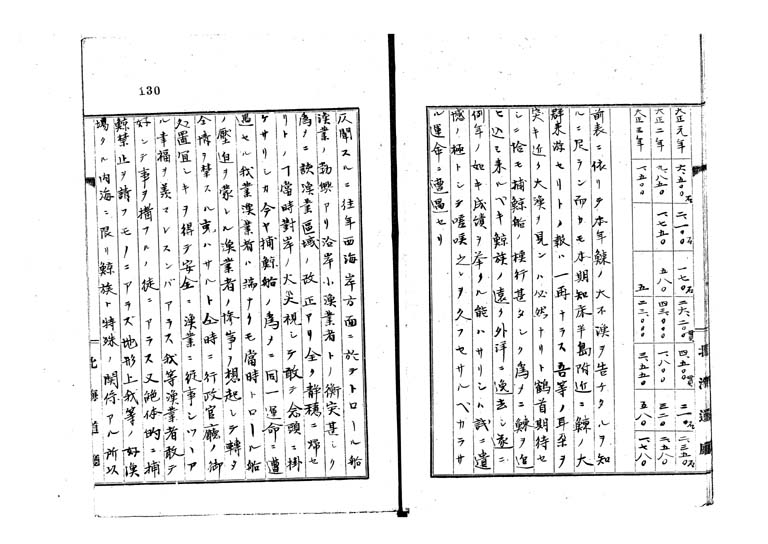 大正元年 六、五〇〇石 二、一〇〇 一七〇石 二六、二〇〇 四、五〇貫 二一〇石 二三五〇石
大正二年 九、八五〇 一、七五〇 五八〇 四三、〇〇〇 一、八〇〇 三二〇 二、五八〇
大正三年 一、五〇〇 五 二三、〇〇〇 三、五五〇 五八〇 一、七八〇
前表ニ依リテ本年鰊ノ大不漁ヲ告ケタルヲ知
ルニ足ラン而カモ本期知床半島附近ニ鰊ノ大
群来游セリトノ報ハ一再ナラス吾等ノ耳朶ヲ
突キ近ク大漁ヲ見ンハ必然ナリト鶴首期待セ
シニ恰モ捕鯨船ノ横行甚タシク為メニ鰊ヲ追
ヒ込ミ来ルベキ鯨族ノ遠ク外洋ニ漁去シ遂ニ
例年ノ如キ成績ヲ挙クル能ハサリシハ誠ニ遺
憾ノ極トシテ嗟嘆之レヲ久フセサルベカラサ
ル運命ニ遭遇セリ
北海道廳
130
仄聞スルニ往年西海岸方面ニ於テトロール船
漁業ノ勃興アリ沿岸小漁業者トノ衝突甚シク
為メニ該漁業区域ノ改正アリ全ク静穏ニ帰セ
リト丁当時対岸ノ火災視シテ敢テ念頭ニ掛
ケサリシカ今ヤ捕鯨船ノ為メニ同一運命ニ遭
遇セル我業漁業者ハ端ナクモ当時トロール船
ノ壓迫ヲ蒙レル漁業者ノ惨事ヲ想起シテ轉タ
同情ヲ禁スル能ハサルト同時ニ行政官廳ノ御
処置宜シキヲ得テ安全ニ漁業ニ従事シツヽア
ル幸福ヲ羨マスンバアラス我等漁業者敢テ
好ンデ事ヲ構フルノ徒ニアラス又絶体的ニ捕
鯨禁止ヲ請フモノニアラズ地形上我等ノ好漁
場タル内海ニ限リ鯨族ト特殊ノ関係アル所以
北海道廳